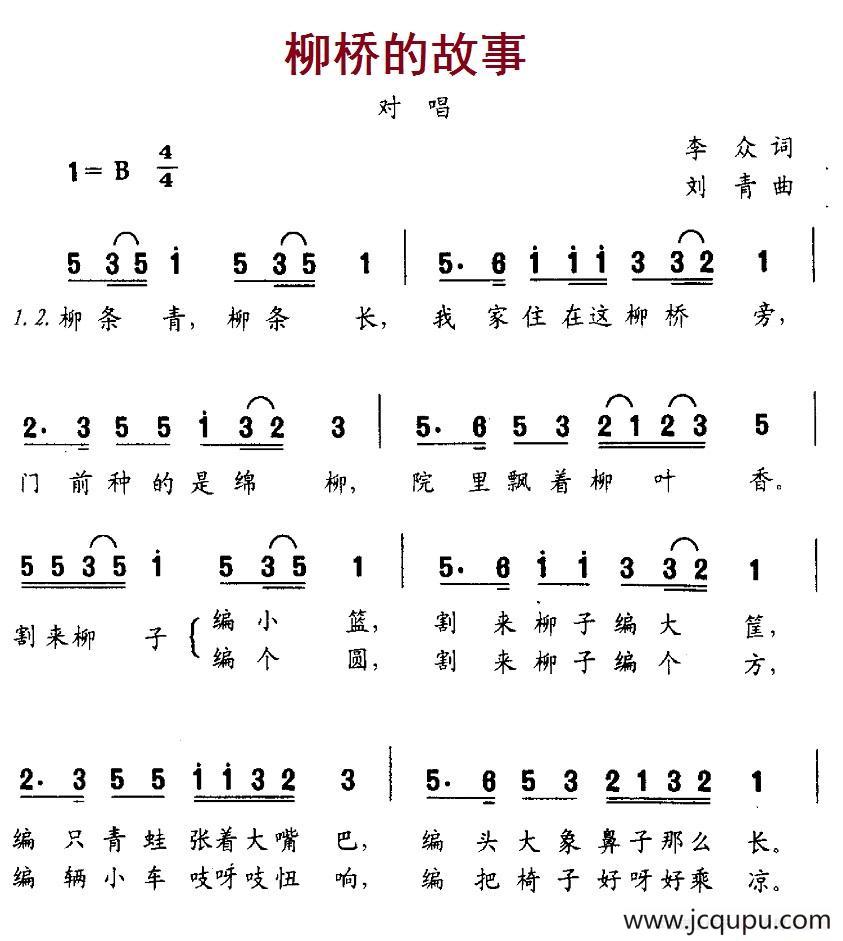 柳桥的故事
对 唱
1=B 4/4
李 众 词
刘 青 曲
5 3 5 i 5 3 5 1 | 5. 6 i i i 3 3 2 1 |
1.2.柳 条 青, 柳 条 长, 我 家 住 在 这 柳 桥 旁,
2. 3 5 5 i 3 2 3 | 5. 6 5 3 2 1 2 3 5 |
门 前 种 的 是 绵 柳, 院 里 飘 着 柳 叶 香。
5 5 3 5 i 5 3 5 1 | 5. 6 i i 3 3 2 1 |
割 来 柳 子 { 编 小 篮, 割 来 柳 子 编 大 筐,
编 个 圆, 割 来 柳 子 编 个 方,
2. 3 5 5 i i 3 2 3 | 5. 6 5 3 2 1 3 2 1 |
编 只 青 蛙 张 着 大 嘴 巴, 编 头 大 象 鼻 子 那 么 长。
编 辆 小 车 吱 呀 吱 扭 响, 编 把 椅 子 好 呀 好 乘 凉。
www.jcqupu.com